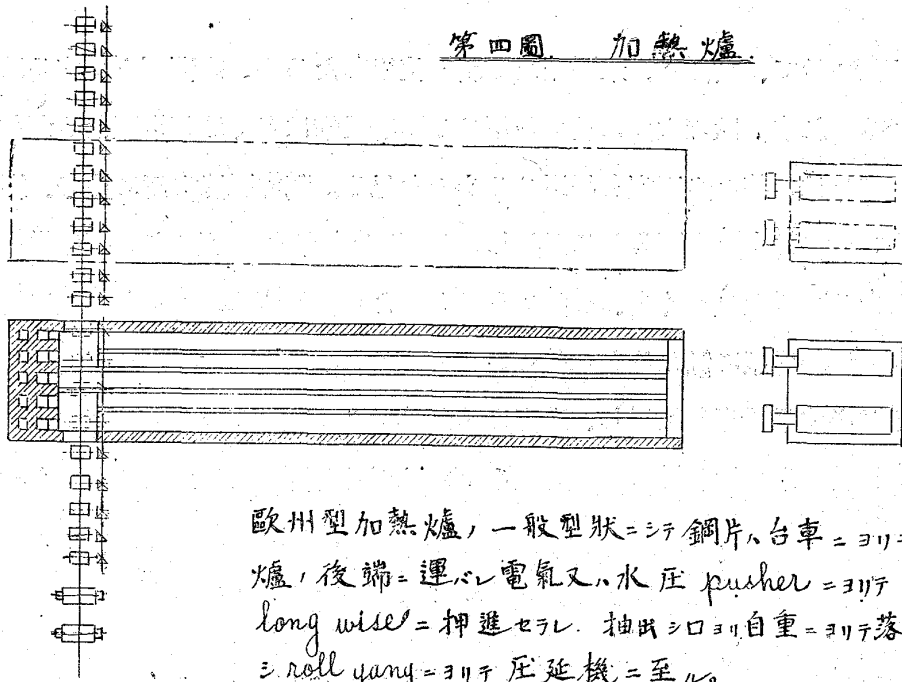 第四圖. 加熱爐.
歐州型加熱爐ノ一般型狀ニシテ鋼片ハ台車ニヨリテ
爐ノ後端ニ運バレ電氣又ハ水圧 pusher ニヨリテ
long wise ニ押進セラレ. 抽出シ口ヨリ自重ニヨリテ落
シ roll gang ニヨリテ圧延機ニ至ル。